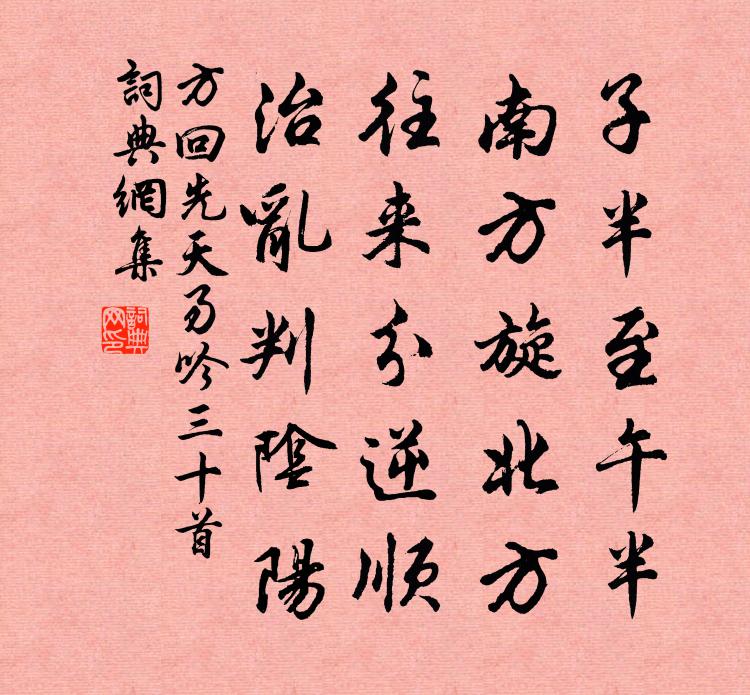 子半至午半
南方旋北方
往来分逆順
治亂判陰陽
方回先天易吟三十首
詞典網集
詞典网印